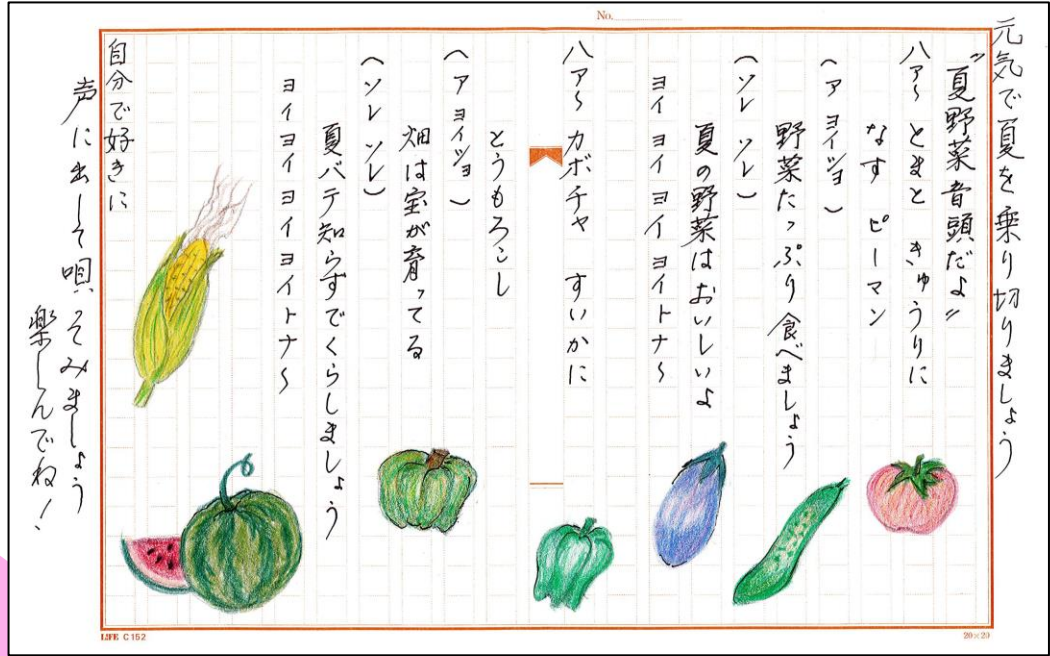 No.
元気で夏を乗り切りましょう
"夏野菜音頭だよ"
ハア〜 とまと きゅうりに
なす ピーマン
(ア ヨイショ)
野菜たっぷり食べましょう
(ソレ ソレ)
夏の野菜はおいしいよ
ヨイ ヨイヨイ ヨイトナ〜
ハア〜 カボチャ すいかに
とうもろこし
(ア ヨイショ)
畑は宝が育ってる
(ソレ ソレ)
夏バテ知らずでくらしましょう
ヨイヨイヨイ ヨイトナ〜
自分で好きに
声に出して唄ってみましょう
楽しんでね!
LIFE C152
20×20